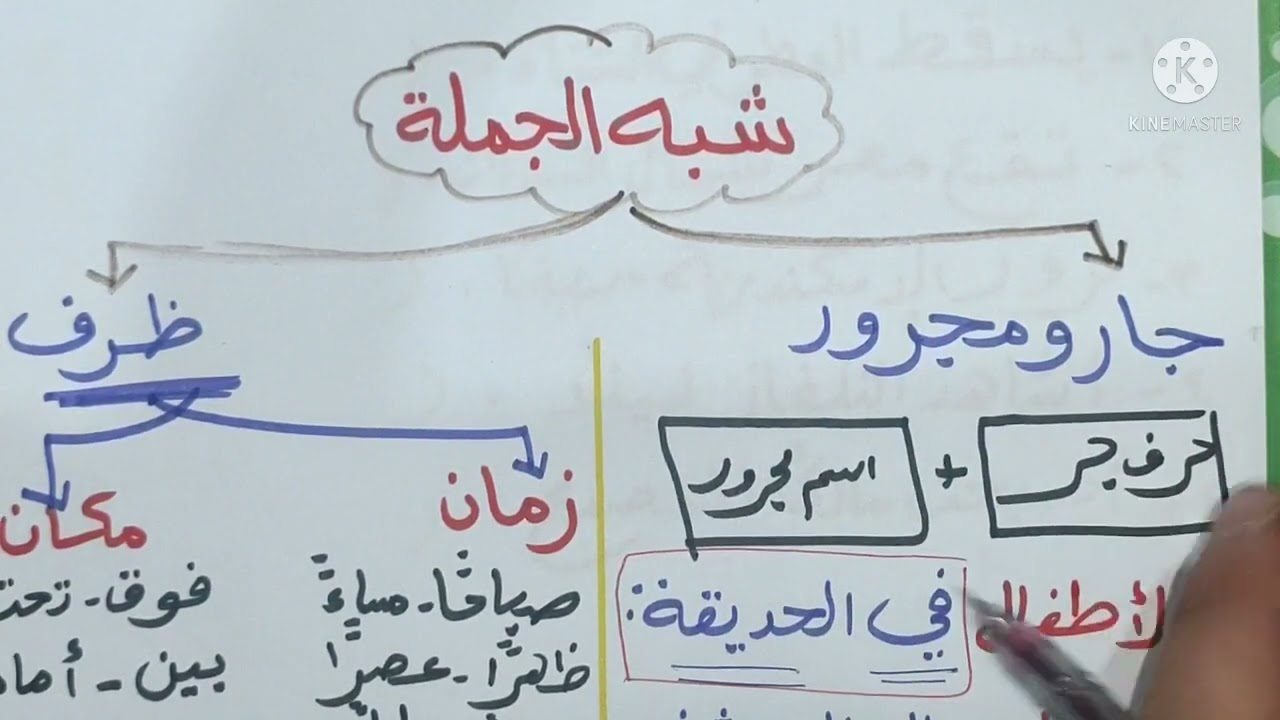 شبه الجملة
KINEMASTER
جار ومجرور
ظرف
حرف جر + اسم مجرور
زمان
مكان
الأطفال في الحديقة:
صباحًا - مساءً
ظهرًا - عصرًا
فوق - تحت
بين - أمام